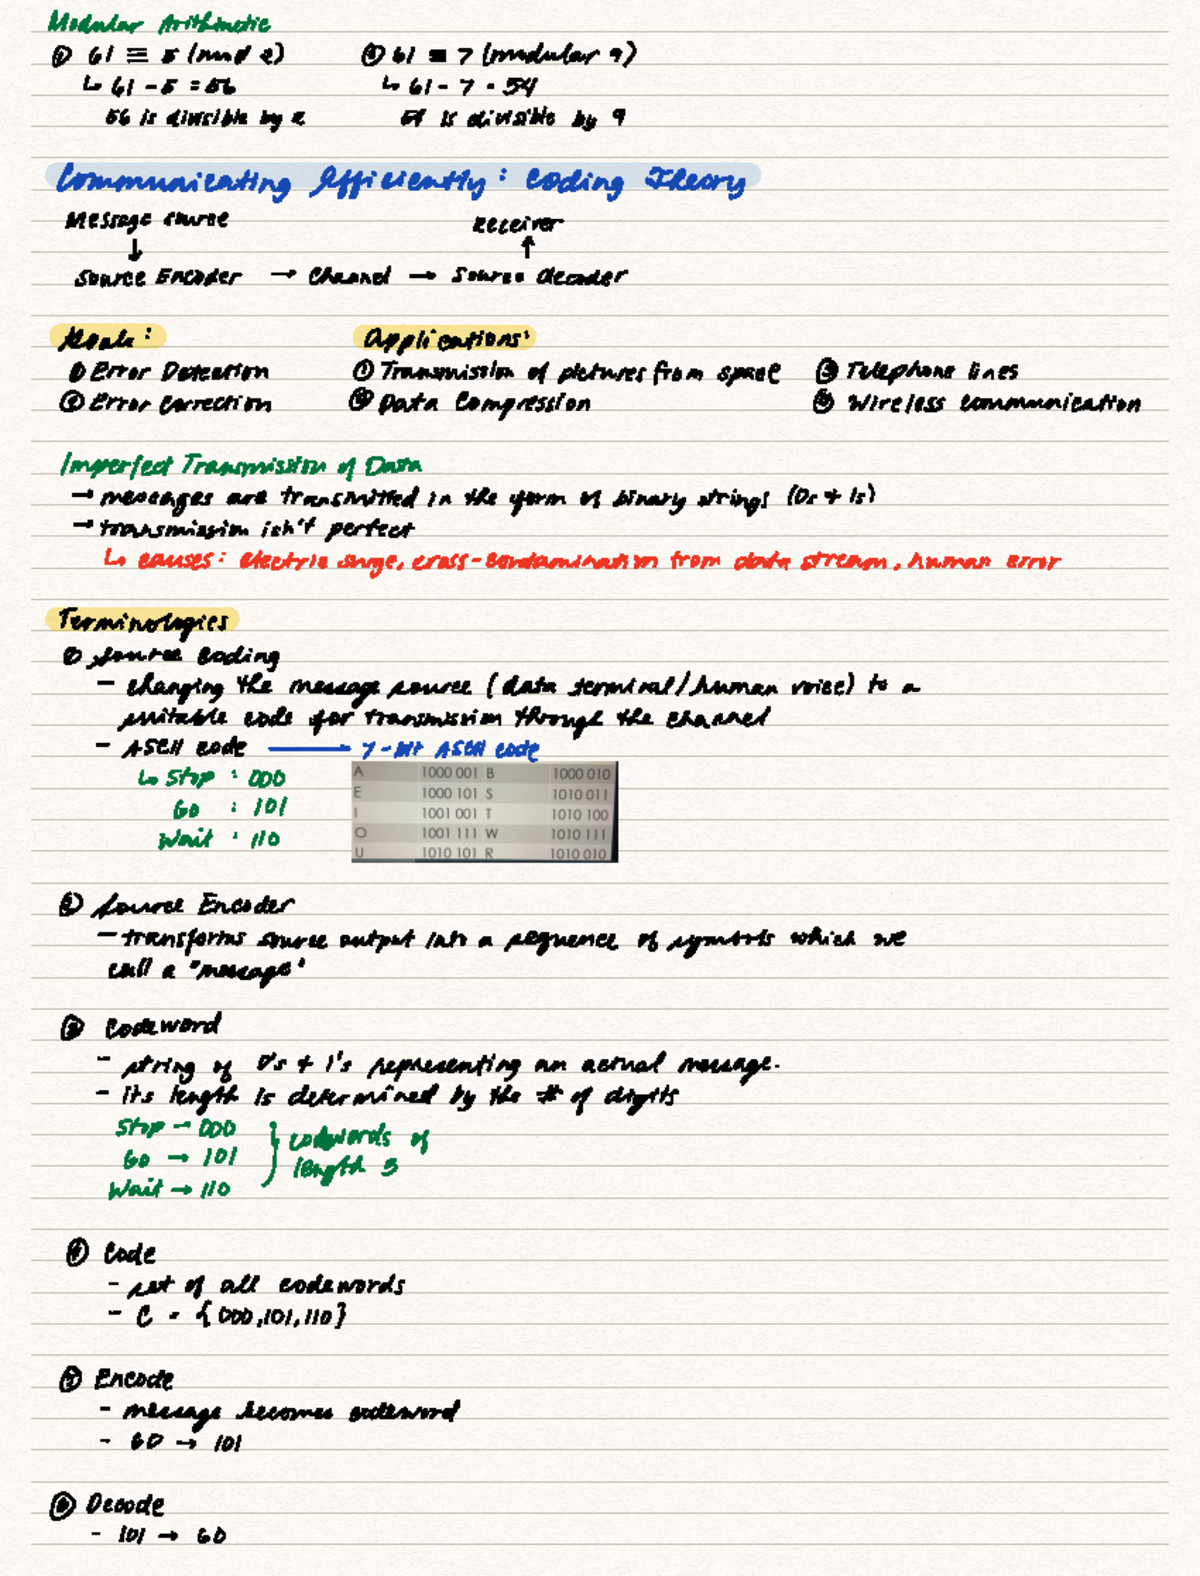 Modular Arithmetic
① 61 ≡ 5 (mod 2) ② 61 ≡ 7 (modular 9)
↳ 61 - 5 = 56 ↳ 61 - 7 = 54
56 is divisible by 2 54 is divisible by 9
Communicating Efficiently: Coding Theory
Message source Receiver
↓ ↑
Source Encoder → Channel → Source decoder
Goals: Applications:
① Error Detection ① Transmission of pictures from space ③ Telephone lines
② Error Correction ② Data Compression ④ Wireless communication
Imperfect Transmission of Data
→ messages are transmitted in the form of binary strings (0s + 1s)
→ transmission isn't perfect
↳ causes: electric surge, cross-contamination from data stream, human error
Terminologies
① Source Coding
- changing the message source (data terminal/human voice) to a
suitable code for transmission through the channel
- ASCII code — 7-bit ASCII code
↳ Stop : 000
Go : 101
Wait : 110
A 1000 001 B 1000 010
E 1000 101 S 1010 011
I 1001 001 T 1010 100
O 1001 111 W 1010 111
U 1010 101 R 1010 010
② Source Encoder
- transforms source output into a sequence of symbols which we
call a "message"
③ Codeword
- string of 0's + 1's representing an actual message.
- its length is determined by the # of digits
Stop → 000
Go → 101
Wait → 110
} codewords of
length 3
④ Code
- set of all codewords
- C = {000,101,110}
⑤ Encode
- message becomes codeword
- GO → 101
⑥ Decode
- 101 → GO